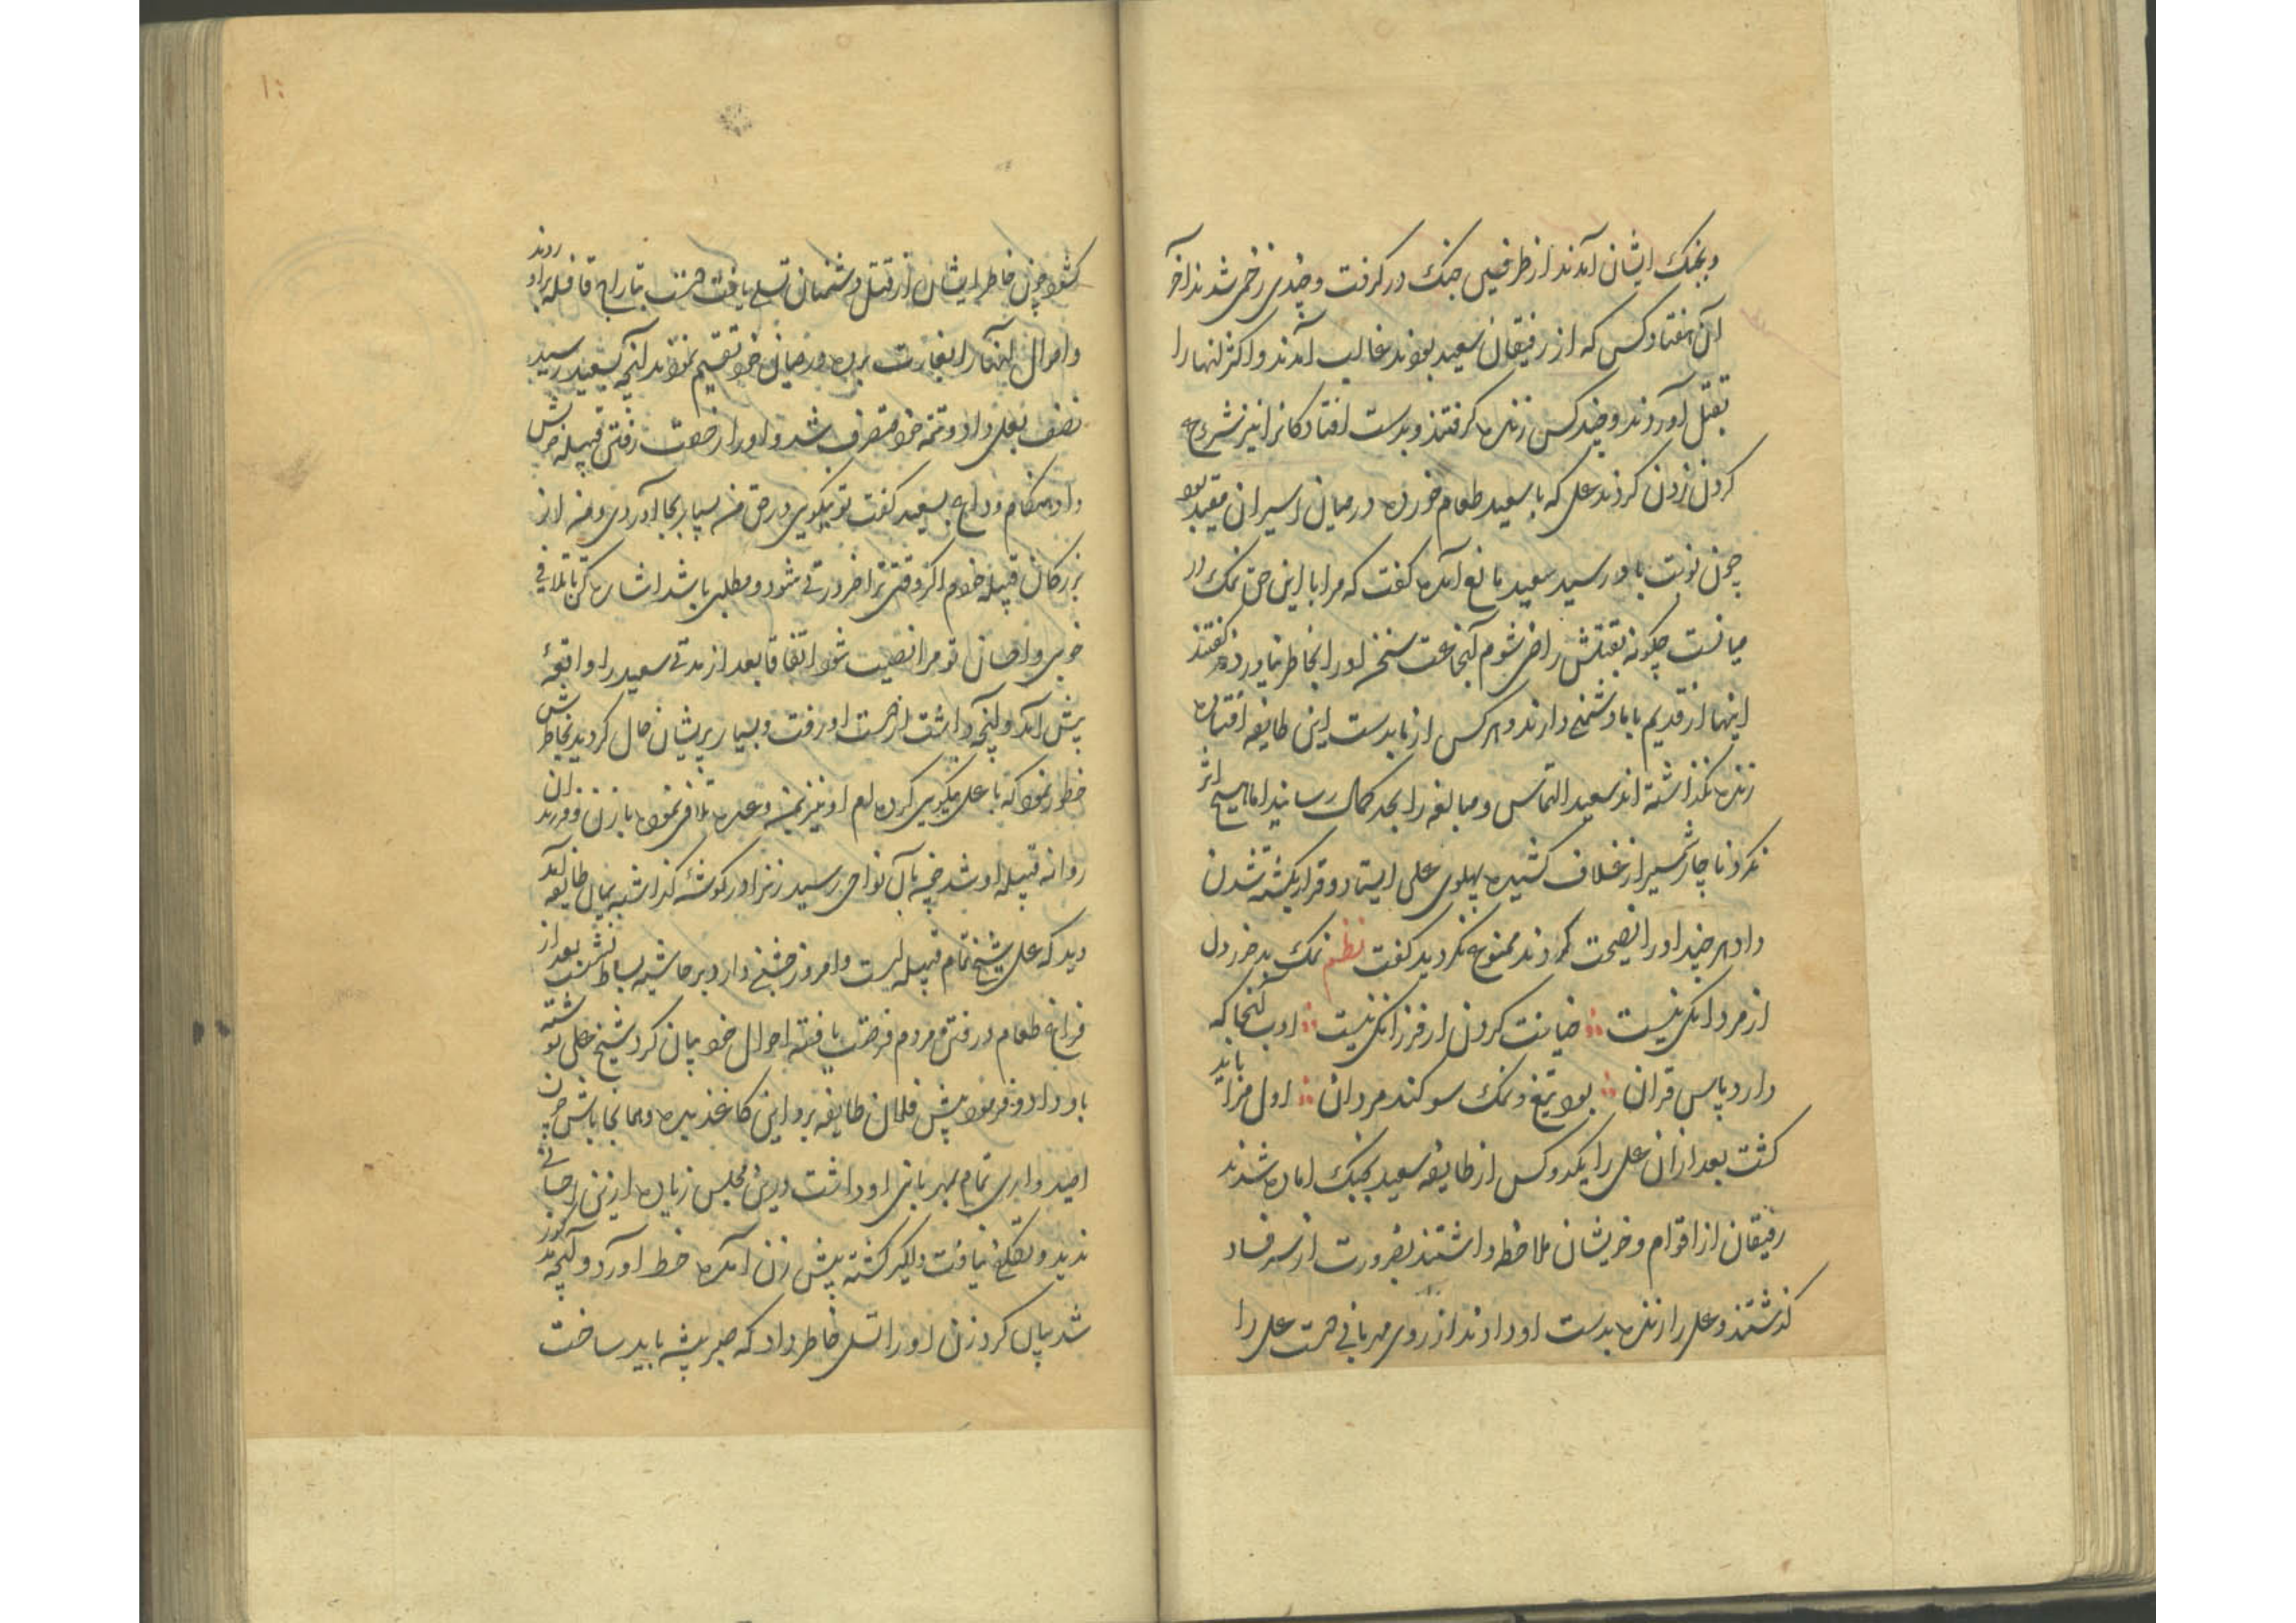 و بجنک ایشان آمدند از طرفین جنک در کرفت و چندی زخمی شدند آخر
آن هفتاد کس که از رفیقان سعید بودند غالب آمدند و اکثر آنها را
بقتل آوردند و چند کس زنده کرفتند و بدست افتادکانرا نیز شروع
کردن زدن کردند علی که با سعید طعام خورده در میان اسیران مقید بود
چون نوبت باو رسید سعید مانع آمده کفت که مرا با این حق نمک در
میانست چکونه بقتلش راضی شوم آنجماعت سخن او را بخاطر نیاورده کفتند
اینها از قدیم با ما دشمنی دارند و هر کس از ما بدست این طایفه افتاده
زنده نکذاشته اند سعید التماس و مبالغه را بحد کمال رسانید اما هیچ اثر
نکرد ناچار شمشیر از غلاف کشیده پهلوی علی ایستاد و قرار بکشته شدن
داد هر چند او را نصیحت کردند ممنوع نکردید کفت نظم نمک بد خور دل
از مردانکی نیست خیانت کردن از فرزانکی نیست ادب آنجا که
دارد پاس قران بود تیغ و نمک سوکند مردان اول مرا باید
کشت بعد ازان علی را یکدو کس از طایفه سعید بجنک اماده شدند
رفیقان از اقوام و خویشان ملاحظه داشتند بضرورت از سر فساد
کذشتند و علی را زنده بدست او دادند از روی مهربانی دست علی را
کشود چون خاطر ایشان از قتل دشمنان تسلی یافت بتاراج قافله براو روند
و اموال آنها را بغارت برده در میان خود تقسیم نمودند آنچه بسعید رسید
نصف بعلی داد و تتمه خود متصرف شد و او را رخصت رفتن قبیله خویش
داد هنکام وداع بسعید کفت تو نیکوی در حق من بسیار بجا آوردی و من از
بزرکان قبیله خودم اکر وقتی ترا ضرورتی شود و مطلبی باشد اشاره کن تا تلافی
خوبی و احسان تو مرا نصیب شود اتفاقا بعد از مدتی سعید را واقعهٔ
پیش آمد و آنچه داشت از دست او رفت و بسیار پریشان حال کردید بخاطرش
خطور نمود که با علی نیکویی کرده ام او نیز بمن وعده تلافی نموده با زن و فرزندان
روانه قبیله او شد چون بآن نواحی رسید زنرا در کوشهٔ کذاشته بمیان طایفه آمد
دید که علی شیخ تمام قبیله است و امروز جشنی دارد بر حاشیه بساط نشست بعد از
فراغ طعام و رفتن مردم فرصت یافته احوال خود بیان کرد شیخ علی نوشته
باو داد و فرمود پیش فلان طایفه برو این کاغذ بده و همانجا باش چون
امیدواری تمام بمهربانی او داشت درین مجلس زیاده ازین احسانی
ندید و تکلفی نیافت دلکیر کشته پیش زن آمده خط آورد و آنچه مذکور
شد بیان کرد زن او را تسلی خاطر داد که صبر پیشه باید ساخت